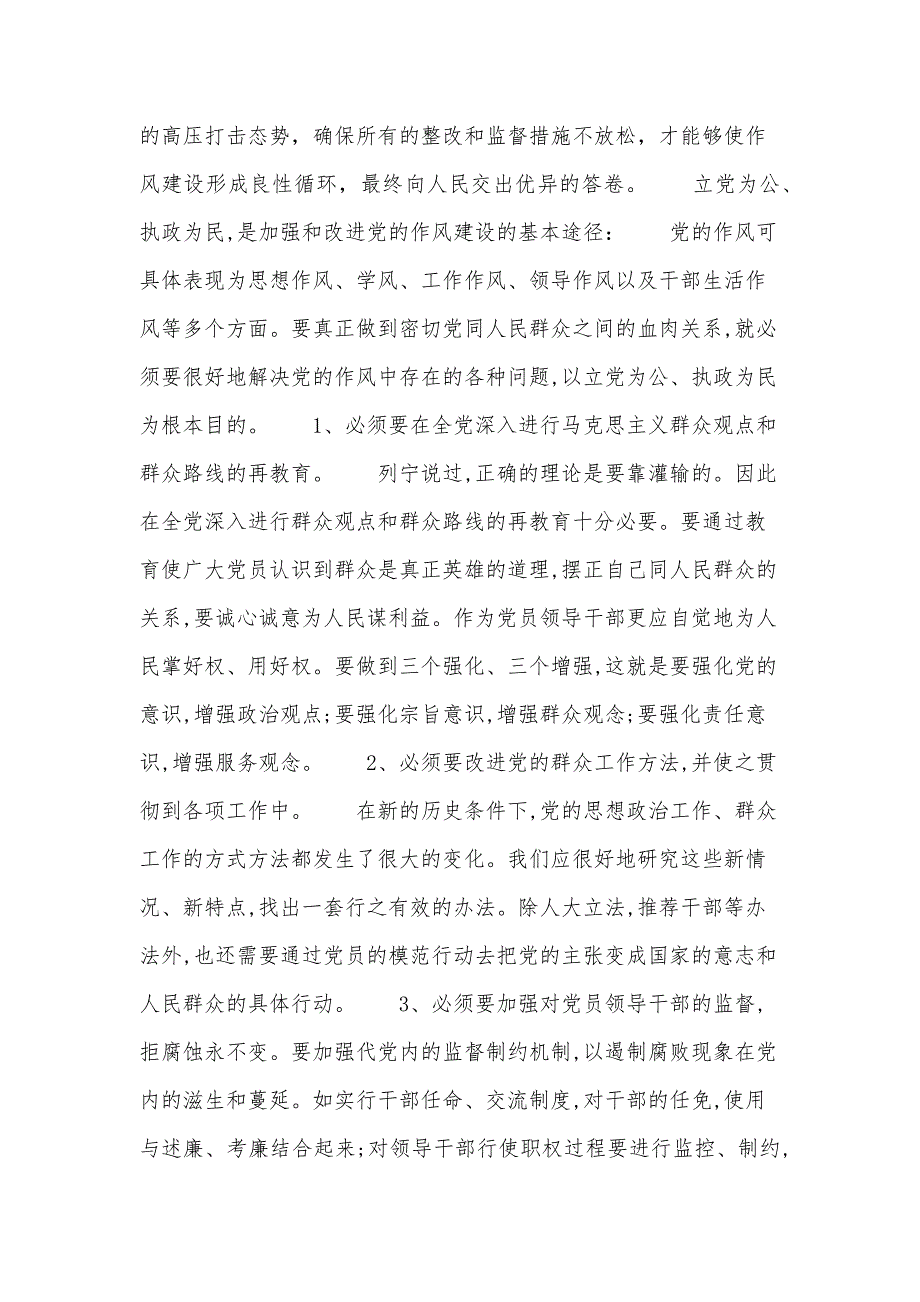 的高压打击态势，确保所有的整改和监督措施不放松，才能够使作
风建设形成良性循环，最终向人民交出优异的答卷。 立党为公、
执政为民,是加强和改进党的作风建设的基本途径： 党的作风可
具体表现为思想作风、学风、工作作风、领导作风以及干部生活作
风等多个方面。要真正做到密切党同人民群众之间的血肉关系,就必
须要很好地解决党的作风中存在的各种问题,以立党为公、执政为民
为根本目的。 1、必须要在全党深入进行马克思主义群众观点和
群众路线的再教育。 列宁说过,正确的理论是要靠灌输的。因此
在全党深入进行群众观点和群众路线的再教育十分必要。要通过教
育使广大党员认识到群众是真正英雄的道理,摆正自己同人民群众的
关系,要诚心诚意为人民谋利益。作为党员领导干部更应自觉地为人
民掌好权、用好权。要做到三个强化、三个增强,这就是要强化党的
意识,增强政治观点;要强化宗旨意识,增强群众观念;要强化责任意
识,增强服务观念。 2、必须要改进党的群众工作方法,并使之贯
彻到各项工作中。 在新的历史条件下,党的思想政治工作、群众
工作的方式方法都发生了很大的变化。我们应很好地研究这些新情
况、新特点,找出一套行之有效的办法。除人大立法,推荐干部等办
法外,也还需要通过党员的模范行动去把党的主张变成国家的意志和
人民群众的具体行动。 3、必须要加强对党员领导干部的监督,
拒腐蚀永不变。要加强代党内的监督制约机制,以遏制腐败现象在党
内的滋生和蔓延。如实行干部任命、交流制度,对干部的任免,使用
与述廉、考廉结合起来;对领导干部行使职权过程要进行监控、制约,